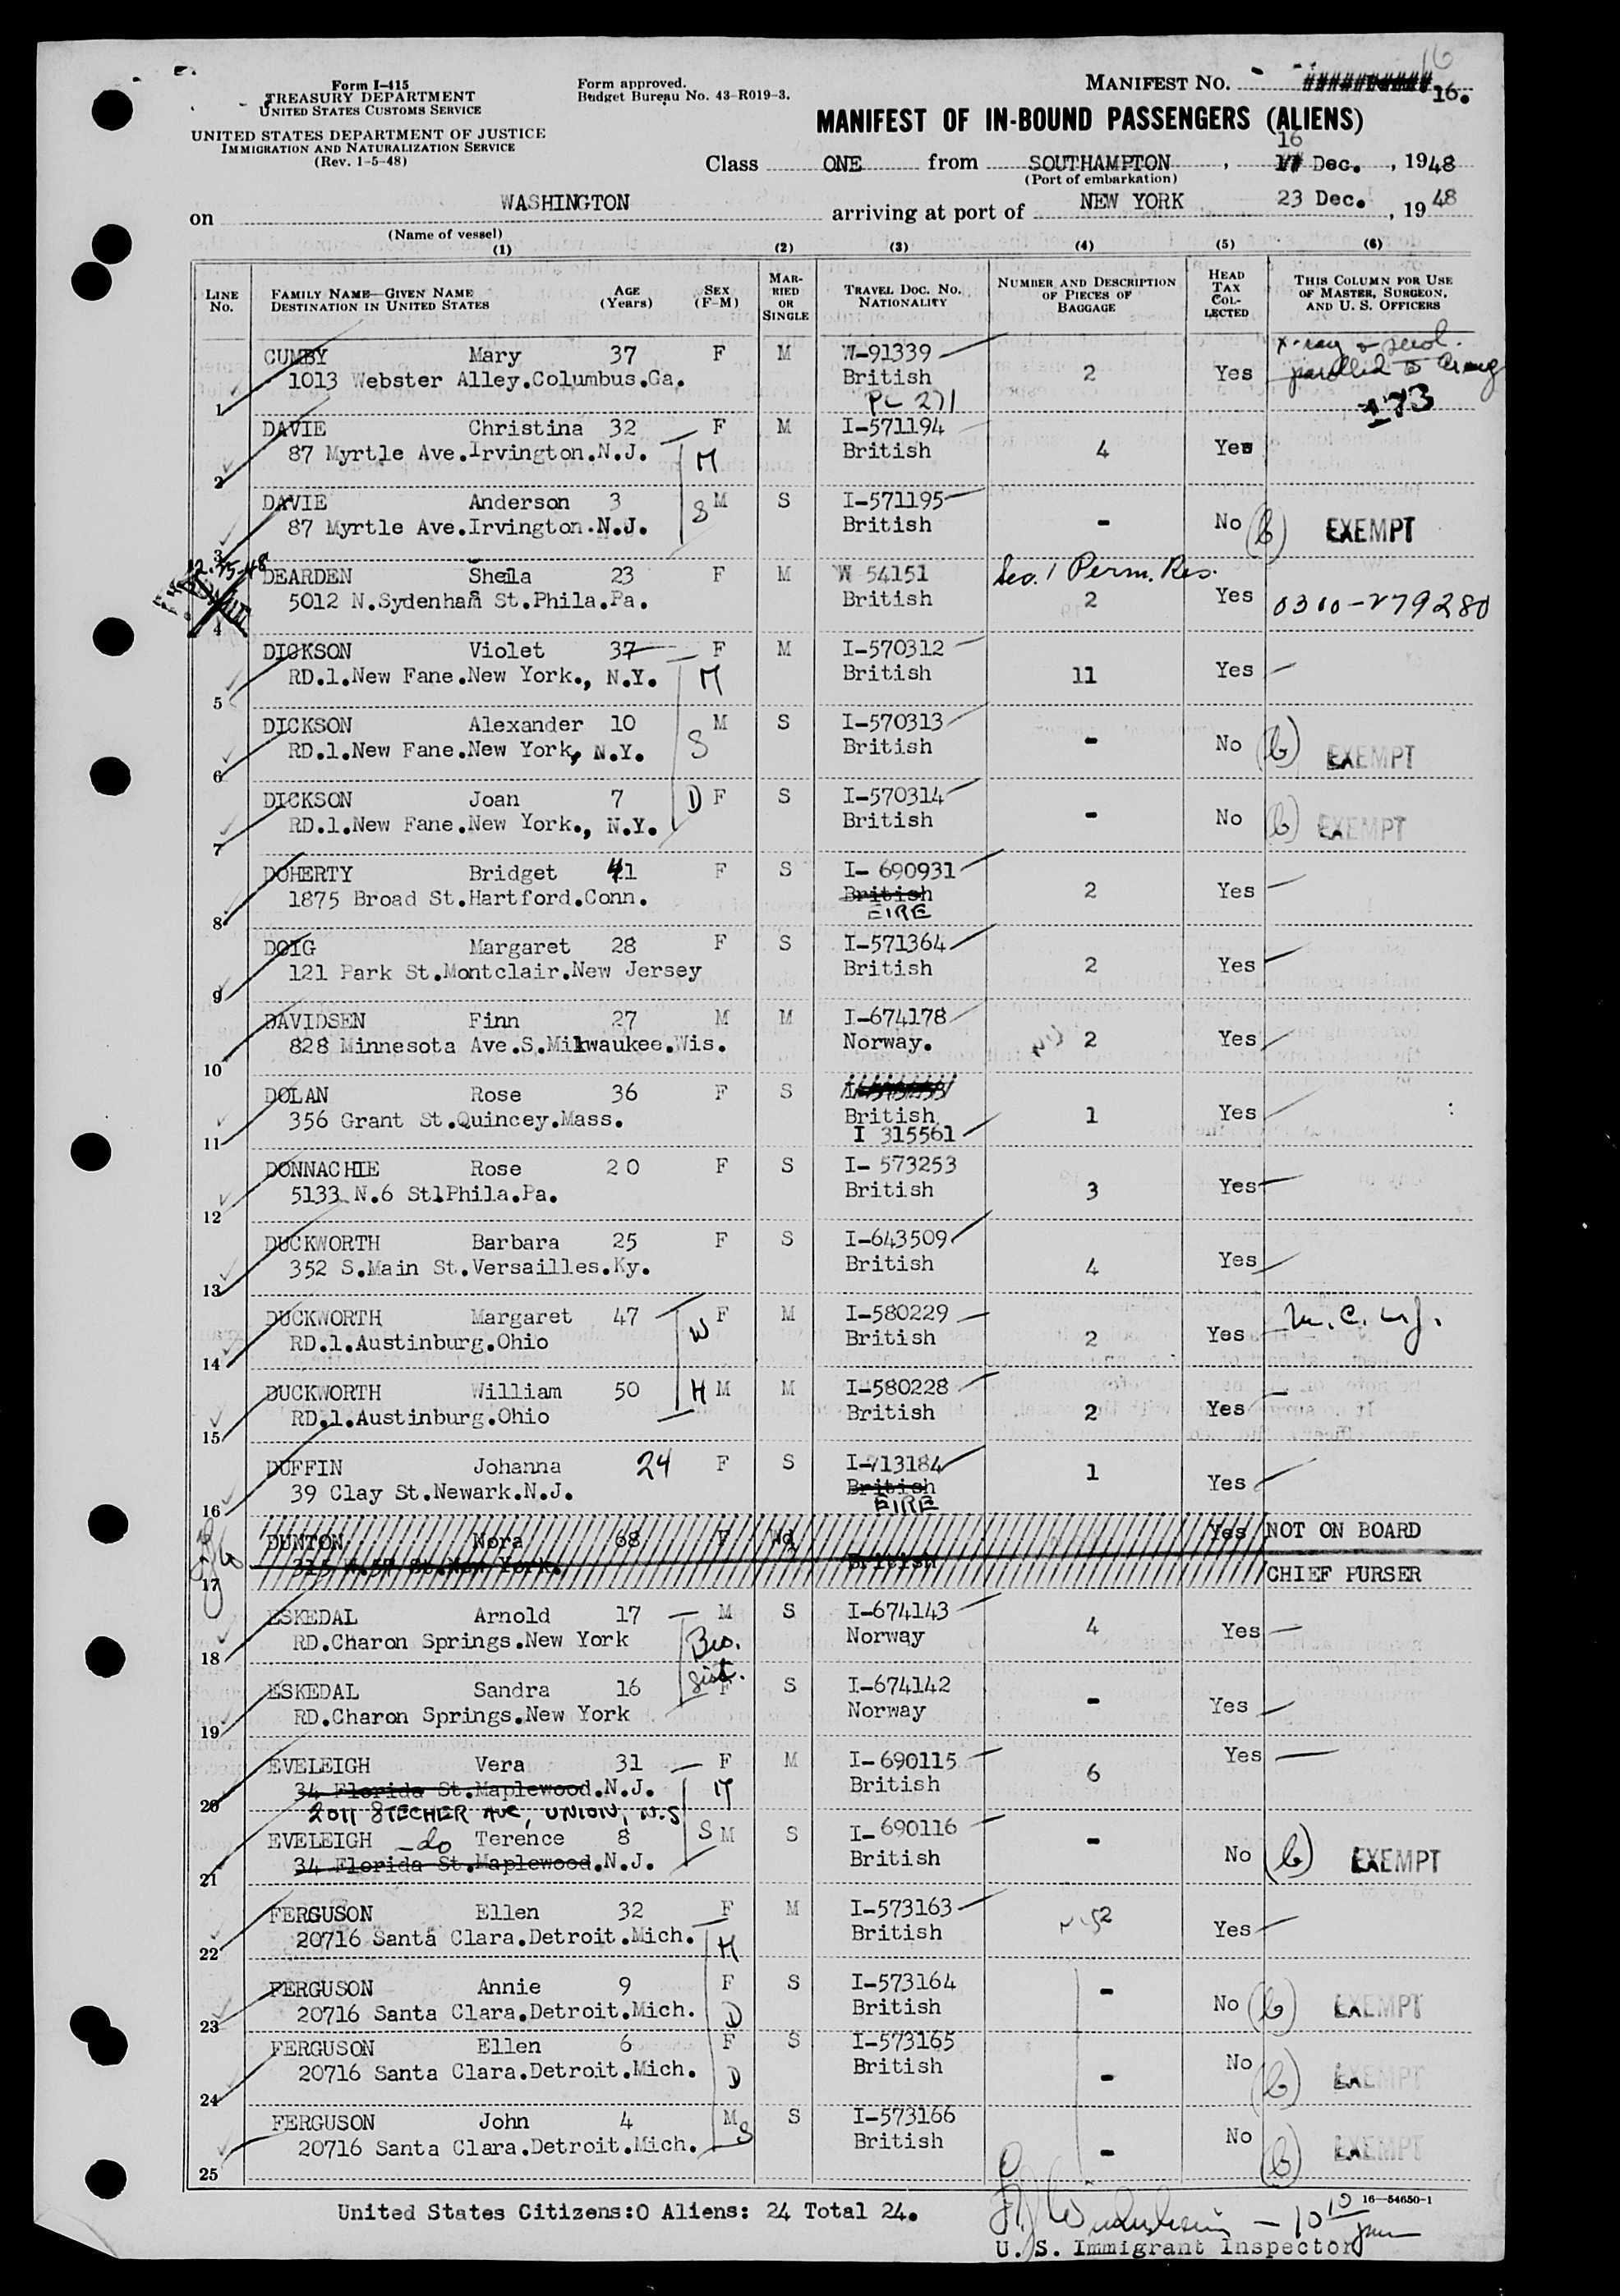 16
Form I-415
TREASURY DEPARTMENT
UNITED STATES CUSTOMS SERVICE
UNITED STATES DEPARTMENT OF JUSTICE
IMMIGRATION AND NATURALIZATION SERVICE
(Rev. 1-5-48)
Form approved.
Budget Bureau No. 43-R019-3.
MANIFEST NO. 16.
MANIFEST OF IN-BOUND PASSENGERS (ALIENS)
16
Class ONE from SOUTHAMPTON, 17 Dec., 1948
(Port of embarkation)
on WASHINGTON arriving at port of NEW YORK 23 Dec., 1948
(Name of vessel)
(1) (2) (3) (4) (5) (6)
LINE No. FAMILY NAME—GIVEN NAME DESTINATION IN UNITED STATES AGE (Years) SEX (F-M) MARRIED OR SINGLE TRAVEL DOC. NO. NATIONALITY NUMBER AND DESCRIPTION OF PIECES OF BAGGAGE HEAD TAX COLLECTED THIS COLUMN FOR USE OF MASTER, SURGEON, AND U. S. OFFICERS
CUMBY Mary 37 F M W-91339 x-ray
1013 Webster Alley.Columbus.Ga. British 2 Yes
1 PL 271 173
DAVIE Christina 32 F M I-571194
87 Myrtle Ave.Irvington.N.J. M British 4 Yes
2
DAVIE Anderson 3 M S I-571195
87 Myrtle Ave.Irvington.N.J. S British - No (b) EXEMPT
3
12-15-48
DEARDEN Sheila 23 F M W 54151 Sec. 1 Perm. Res.
5012 N.Sydenham St.Phila.Pa. British 2 Yes 0300-279280
4
DICKSON Violet 37 F M I-570312
RD.1.New Fane.New York., N.Y. M British 11 Yes
5
DICKSON Alexander 10 M S I-570313
RD.1.New Fane.New York, N.Y. S British - No (b) EXEMPT
6
DICKSON Joan 7 D F S I-570314
RD.1.New Fane.New York., N.Y. British - No (b) EXEMPT
7
DOHERTY Bridget 41 F S I- 690931
1875 Broad St.Hartford.Conn. British 2 Yes
8 EIRE
DOIG Margaret 28 F S I-571364
121 Park St.Montclair.New Jersey British 2 Yes
9
DAVIDSEN Finn 27 M M I-674178
828 Minnesota Ave.S.Milwaukee.Wis. Norway. 2 Yes
10
DOLAN Rose 36 F S
356 Grant St.Quincey.Mass. British 1 Yes
11 I 315561
DONNACHIE Rose 20 F S I- 573253
5133 N.6 St1Phila.Pa. British 3 Yes
12
DUCKWORTH Barbara 25 F S I-643509
352 S.Main St.Versailles.Ky. British 4 Yes
13
DUCKWORTH Margaret 47 F M I-580229
RD.1.Austinburg.Ohio W British 2 Yes
14
DUCKWORTH William 50 H M M I-580228
RD.1.Austinburg.Ohio British 2 Yes
15
DUFFIN Johanna 24 F S I-713184
39 Clay St.Newark.N.J. British 1 Yes
16 EIRE
DUNTON Nora 68 F Wd Yes NOT ON BOARD
315 W.57 St.New York. British
17 CHIEF PURSER
ESKEDAL Arnold 17 M S I-674143
RD.Charon Springs.New York Bro. Norway 4 Yes
18
Sist.
ESKEDAL Sandra 16 F S I-674142
RD.Charon Springs.New York Norway - Yes
19
EVELEIGH Vera 31 F M I-690115 Yes
34 Florida St.Maplewood.N.J. M British 6
20 2011 STECHER AVE, UNION, N.J
EVELEIGH -do Terence 8 S M S I-690116
34 Florida St.Maplewood.N.J. British - No (b) EXEMPT
21
FERGUSON Ellen 32 F M I-573163
20716 Santa Clara.Detroit.Mich. M British 2 Yes
22
FERGUSON Annie 9 F S I-573164
20716 Santa Clara.Detroit.Mich. D British - No (b) EXEMPT
23
FERGUSON Ellen 6 F S I-573165
20716 Santa Clara.Detroit.Mich. D British - No (b) EXEMPT
24
FERGUSON John 4 M S S I-573166
20716 Santa Clara.Detroit.Mich. British - No (b) EXEMPT
25
United States Citizens:0 Aliens: 24 Total 24.
16—54650-1
U. S. Immigrant Inspector